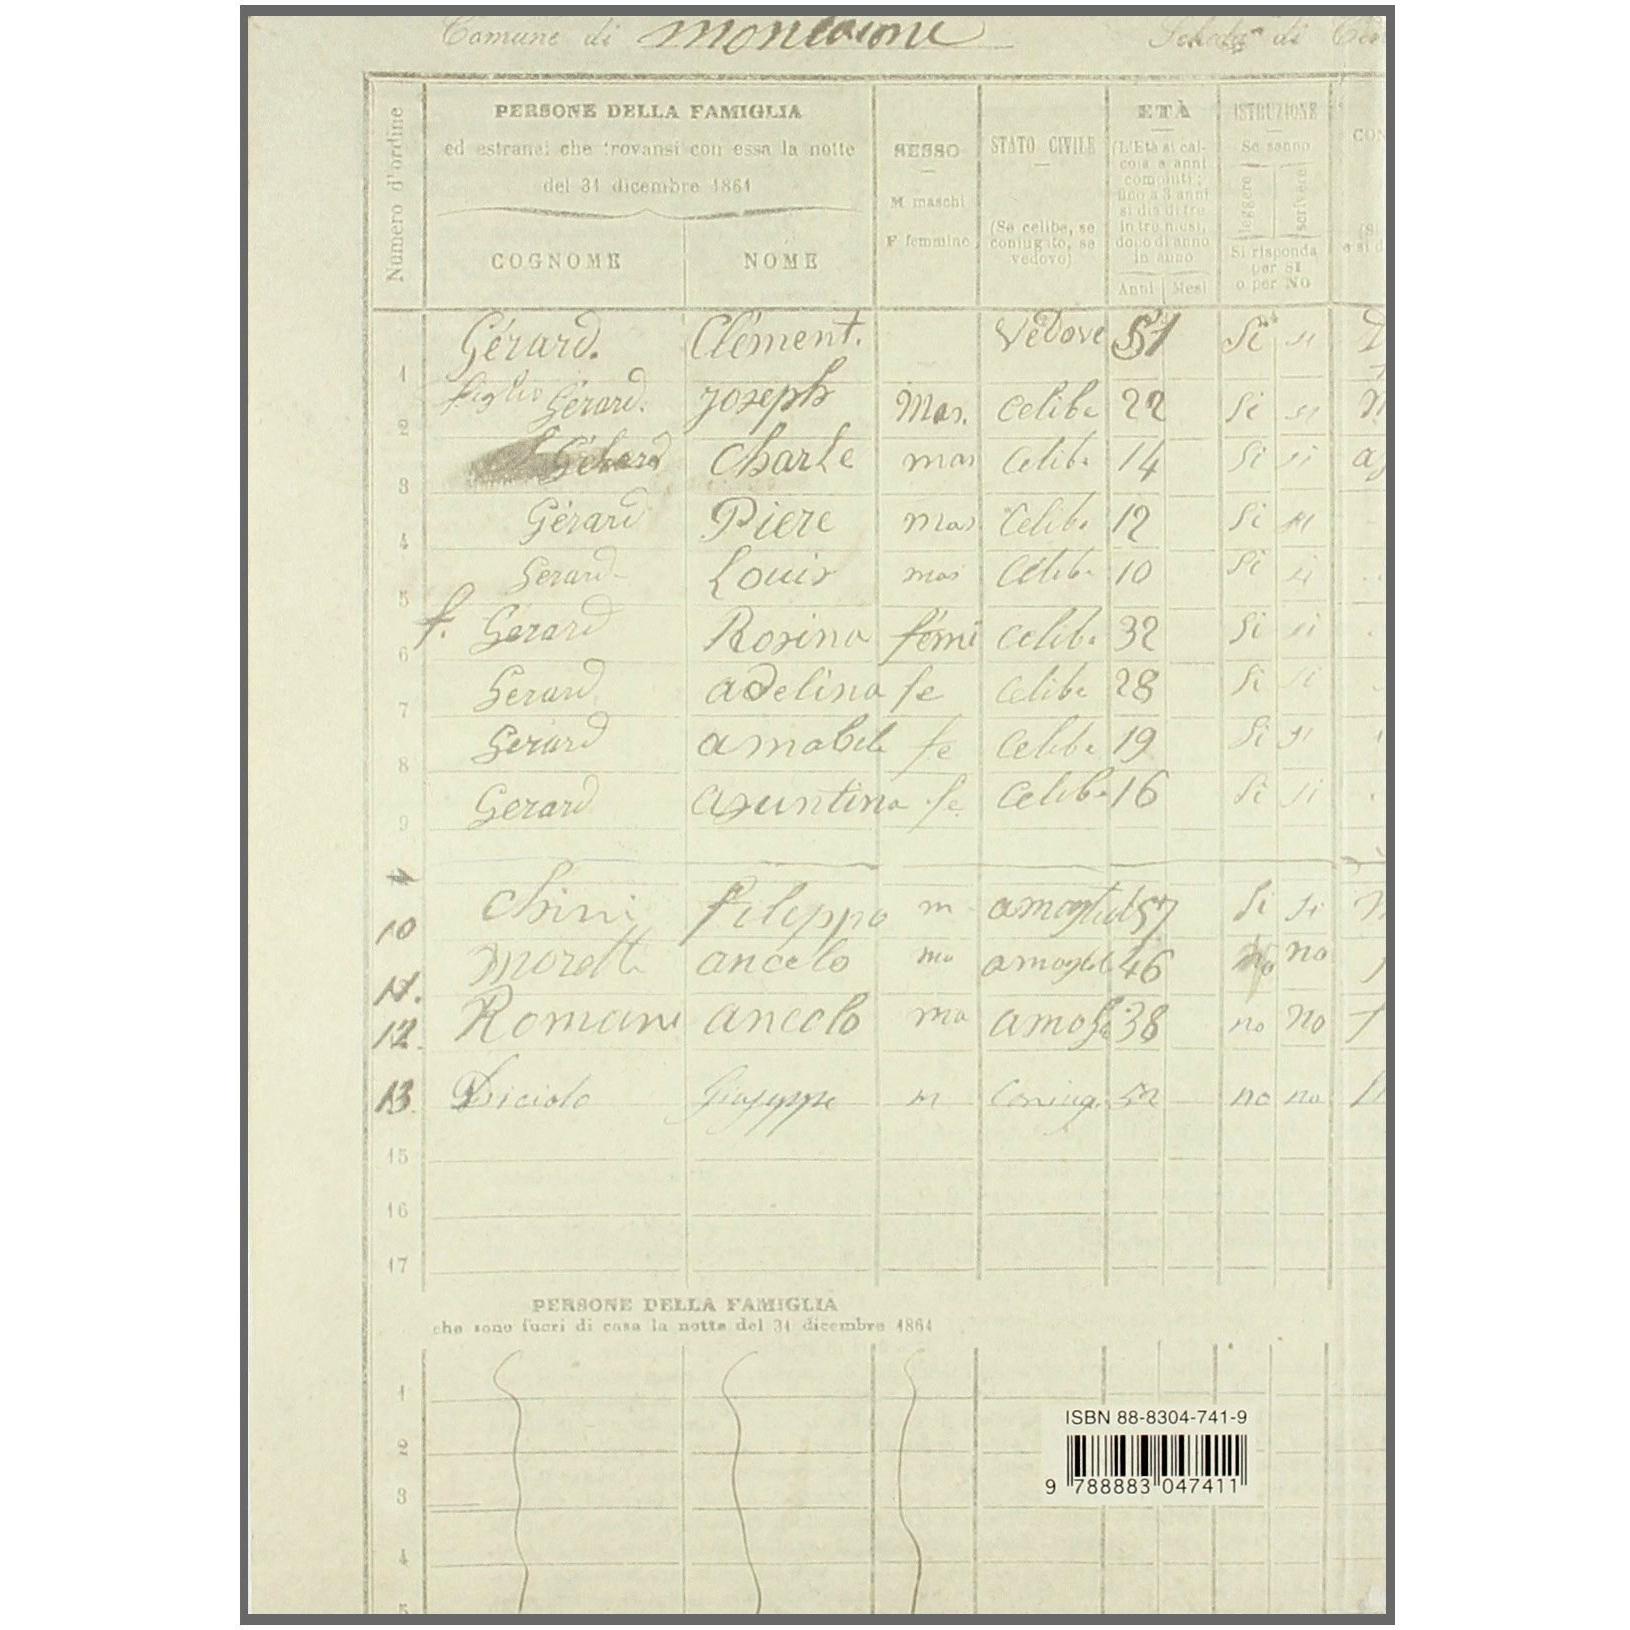 Comune di Montaione Scheda di
Numero d'ordine
PERSONE DELLA FAMIGLIA
ed estranei che trovansi con essa la notte
del 31 dicembre 1861
COGNOME NOME
SESSO
M maschi
F femmine
STATO CIVILE
(Se celibe, se
coniugato, se
vedovo)
ETÀ
(L'Età si cal-
cola a anni
compiuti;
fino a 3 anni
si dia di tre
in tre mesi,
dopo di anno
in anno
Anni Mesi
ISTRUZIONE
Se sanno
leggere scrivere
Si risponda
per SI
o per NO
CON
1 Gérard. Clément. Vedove 51 Si si
2 figlio Gérard. Joseph Mas. Celibe 22 Si si
3 Gérard Charle mas Celibe 14 Si si
4 Gérard Piere mas. Celibe 12 Si si
5 Gerard Louis mas Celibe 10 Si si
6 f. Gerard Rosina fémi Celibe 32 Si si
7 Gerard adelina fe Celibe 28 Si si
8 Gerard amabile fe Celibe 19 Si si
9 Gerard asuntina fe. Celibe 16 Si si
10 Chini filippo m 57 Si si
11. moretti ancelo ma 46 no no
12. Romani ancelo ma 38 no no
13. Diciolo Giuseppe m Coniug. 52 no no
15
16
17
PERSONE DELLA FAMIGLIA
che sono fuori di casa la notte del 31 dicembre 1861
1
2
3
4
5
ISBN 88-8304-741-9
9 788883 047411